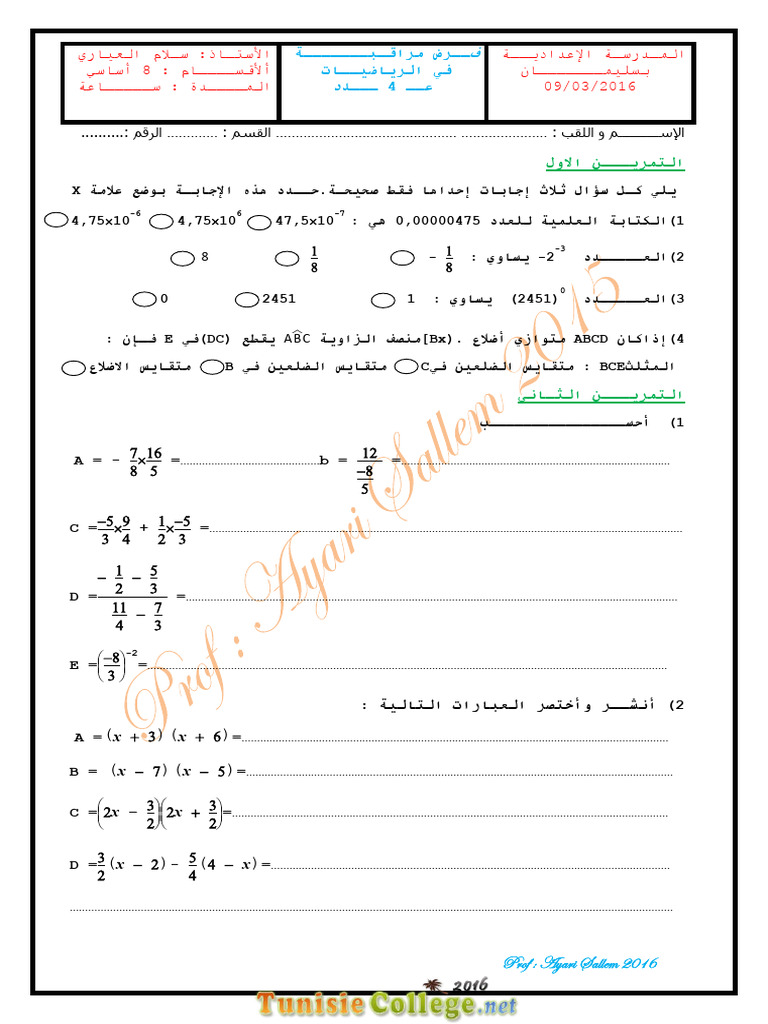 المدرسة الإعدادية
بسليمان
09/03/2016
فرض مراقبة
في الرياضيات
عـ 4 ـدد
الأستاذ: سلام العياري
ألأقسام : 8 أساسي
المدة : ساعة
الإسم و اللقب : ........................ ........................................................ القسم : ............. الرقم :..........
التمرين الاول
يلي كل سؤال ثلاث إجابات إحداها فقط صحيحة.حدد هذه الإجابة بوضع علامة X
1)الكتابة العلمية للعدد 0,00000475 هي : 47,5x10⁻⁷ 4,75x10⁶ 4,75x10⁻⁶
2)العدد -2⁻³ يساوي : -1/8 1/8 8
3)العدد (2451)⁰ يساوي : 1 2451 0
4)إذاكان ABCD متوازي أضلاع .(Bx]منصف الزاوية ABC يقطع (DC)في E فإن :
المثلثBCE : متقايس الضلعين فيC متقايس الضلعين في B متقايس الاضلاع
التمرين الثاني
1) أحسب
A = - 7/8 × 16/5 =........................ b = 12/(-8/5) =........................
C = -5/3 × 9/4 + 1/2 × -5/3 =........................
D = (- 1/2 - 5/3)/(11/4 - 7/3) =........................
E = (-8/3)⁻² =........................
2) أنشر وأختصر العبارات التالية :
A =(x + 3)(x + 6)=........................
B = (x - 7)(x - 5)=........................
C =(2x - 3/2)(2x + 3/2)=........................
D =3/2(x - 2)- 5/4(4 - x)=........................
........................
Prof : Ayari Sallem 2015
Prof : Ayari Sallem 2016
2016
TunisieCollege.net